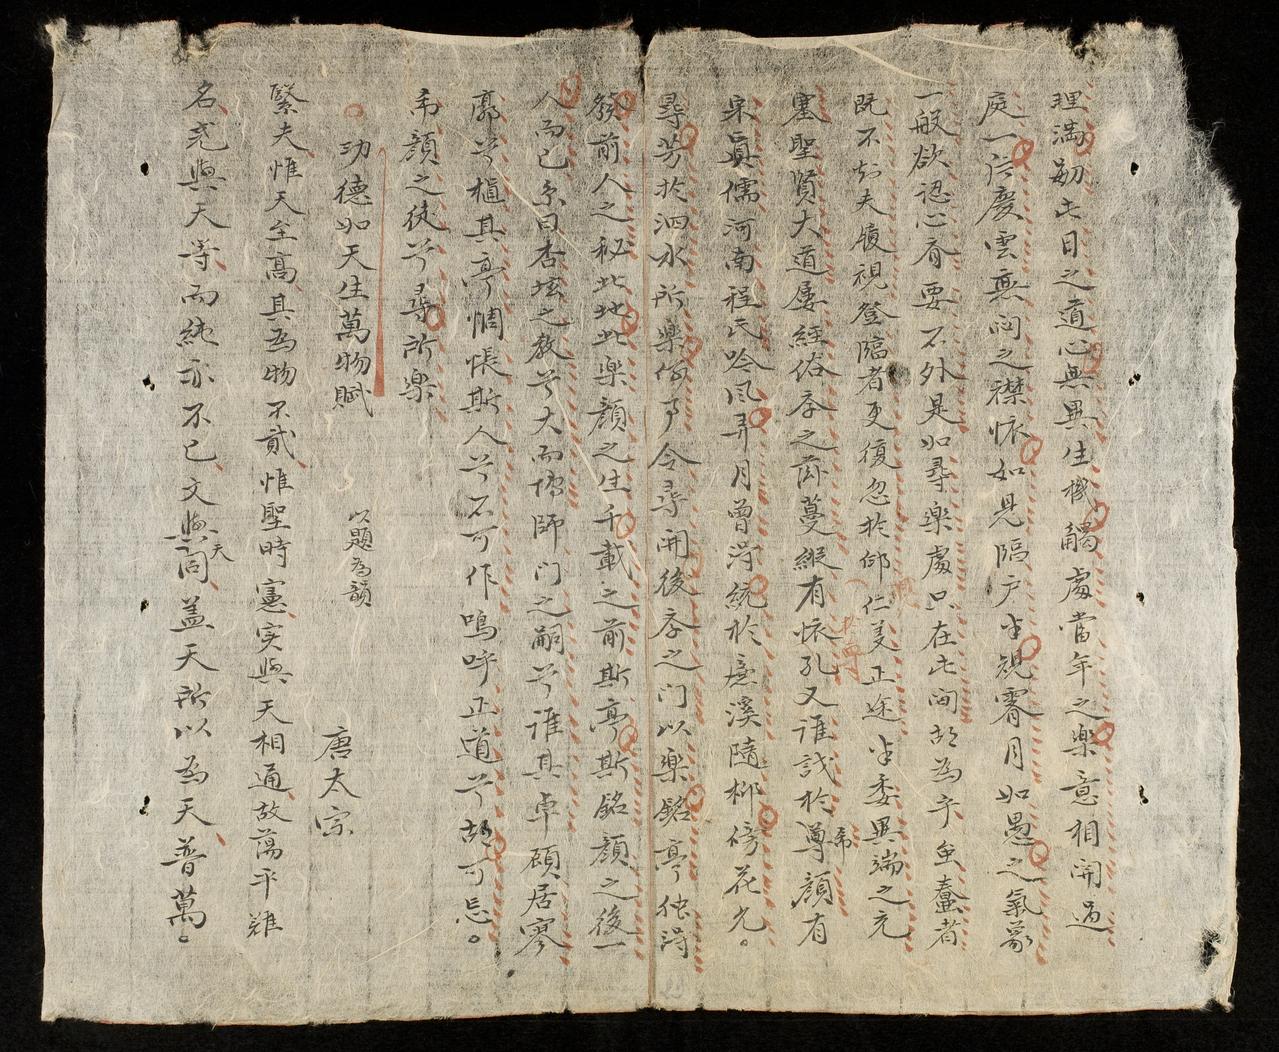 理滿劒此日之道心無異生機觸處當年之樂意相開過
庭一片慶雲無悶之襟怀如見隔戶半規霽月如愚之氣象
一般欲認心斎要不外是如尋樂處只在此間胡為乎蚩蠢者
既不知夫履視登臨者更復忽於仰仁美正途半委異端之充
塞聖賢大道屡經俗斈之蕪蔓縱有怀孔又誰哉於尊希顏有
宋真儒河南程氏吟风弄月曾淂統於濂溪隨柳傍花光。
尋芳於泗水所樂何事令尋開後斈之門以樂銘亭独淂
發前人之秘此地此樂顏之生千載之前斯亭斯銘顏之後一
人而已系曰杏坛之教兮大而博師門之嗣兮誰其卓顧居寥
廓兮樞其亭惆悵斯人兮不可作嗚呼正道兮胡可忘。
希顏之徒兮尋所樂
功德如天生萬物賦 以題為韻 唐太宗
緊夫惟天至高其為物不貳惟聖時憲实與天相通故蕩乎難
名尭與天等而純亦不已文與天同盖天所以為天普萬。